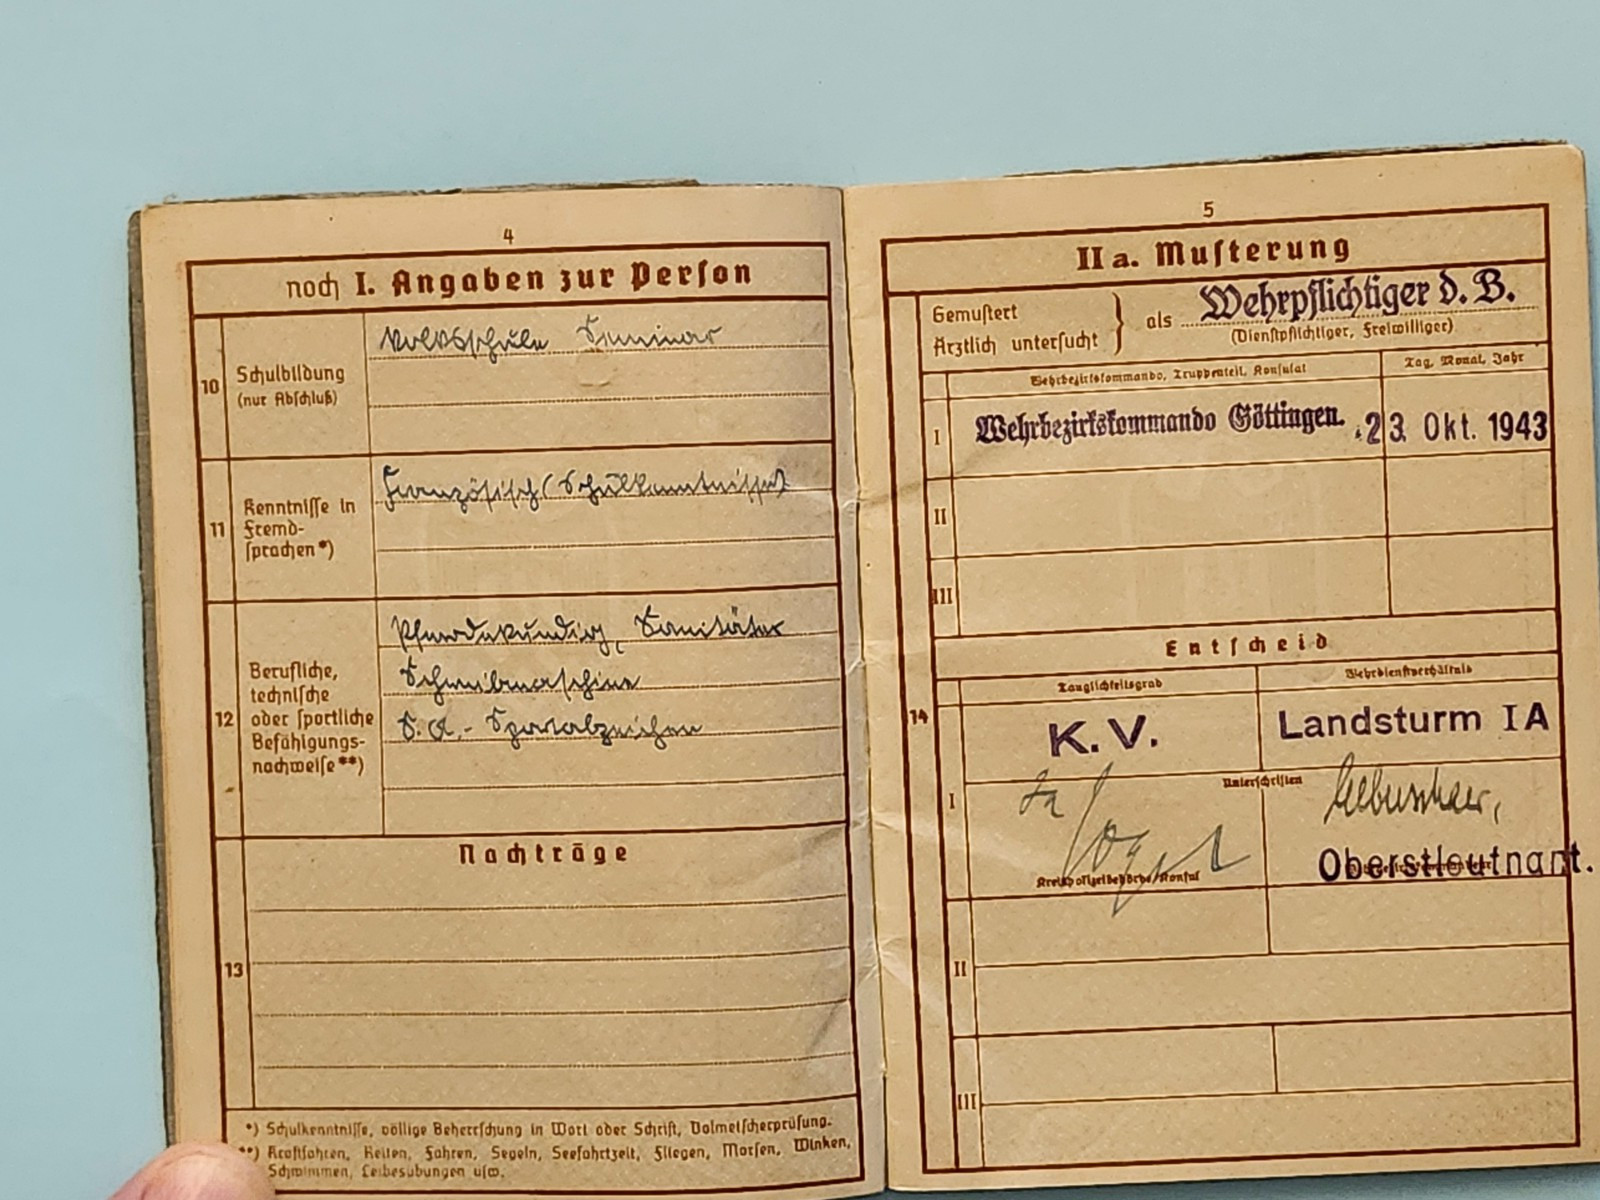 4
noch I. Angaben zur Person
10
Schulbildung
(nur Abschluß)
Volksschule Seminar
11
Kenntnisse in
Fremd-
sprachen*)
Französisch (Schulkenntnisse)
12
Berufliche,
technische
oder sportliche
Befähigungs-
nachweise**)
Pferdekundig, Sanitäter
Schreibmaschine
S.A.- Sportabzeichen
Nachträge
13
*) Schulkenntnisse, völlige Beherrschung in Wort oder Schrift, Dolmetscherprüfung.
**) Kraftfahren, Reiten, Fahren, Segeln, Seefahrtzeit, Fliegen, Morsen, Winken,
Schwimmen, Leibesübungen usw.
5
II a. Musterung
Gemustert
Ärztlich untersucht
als Wehrpflichtiger d. B.
(Dienstpflichtiger, Freiwilliger)
Wehrbezirkskommando, Truppenteil, Konsulat
Tag, Monat, Jahr
I
Wehrbezirkskommando Göttingen. 23. Okt. 1943
II
III
Entscheid
14
Tauglichkeitsgrad
Wehrdienstverhältnis
K. V.
Landsturm I A
Unterschriften
I
Kreispolizeibehörde/Konsul
Oberstleutnant.
II
III